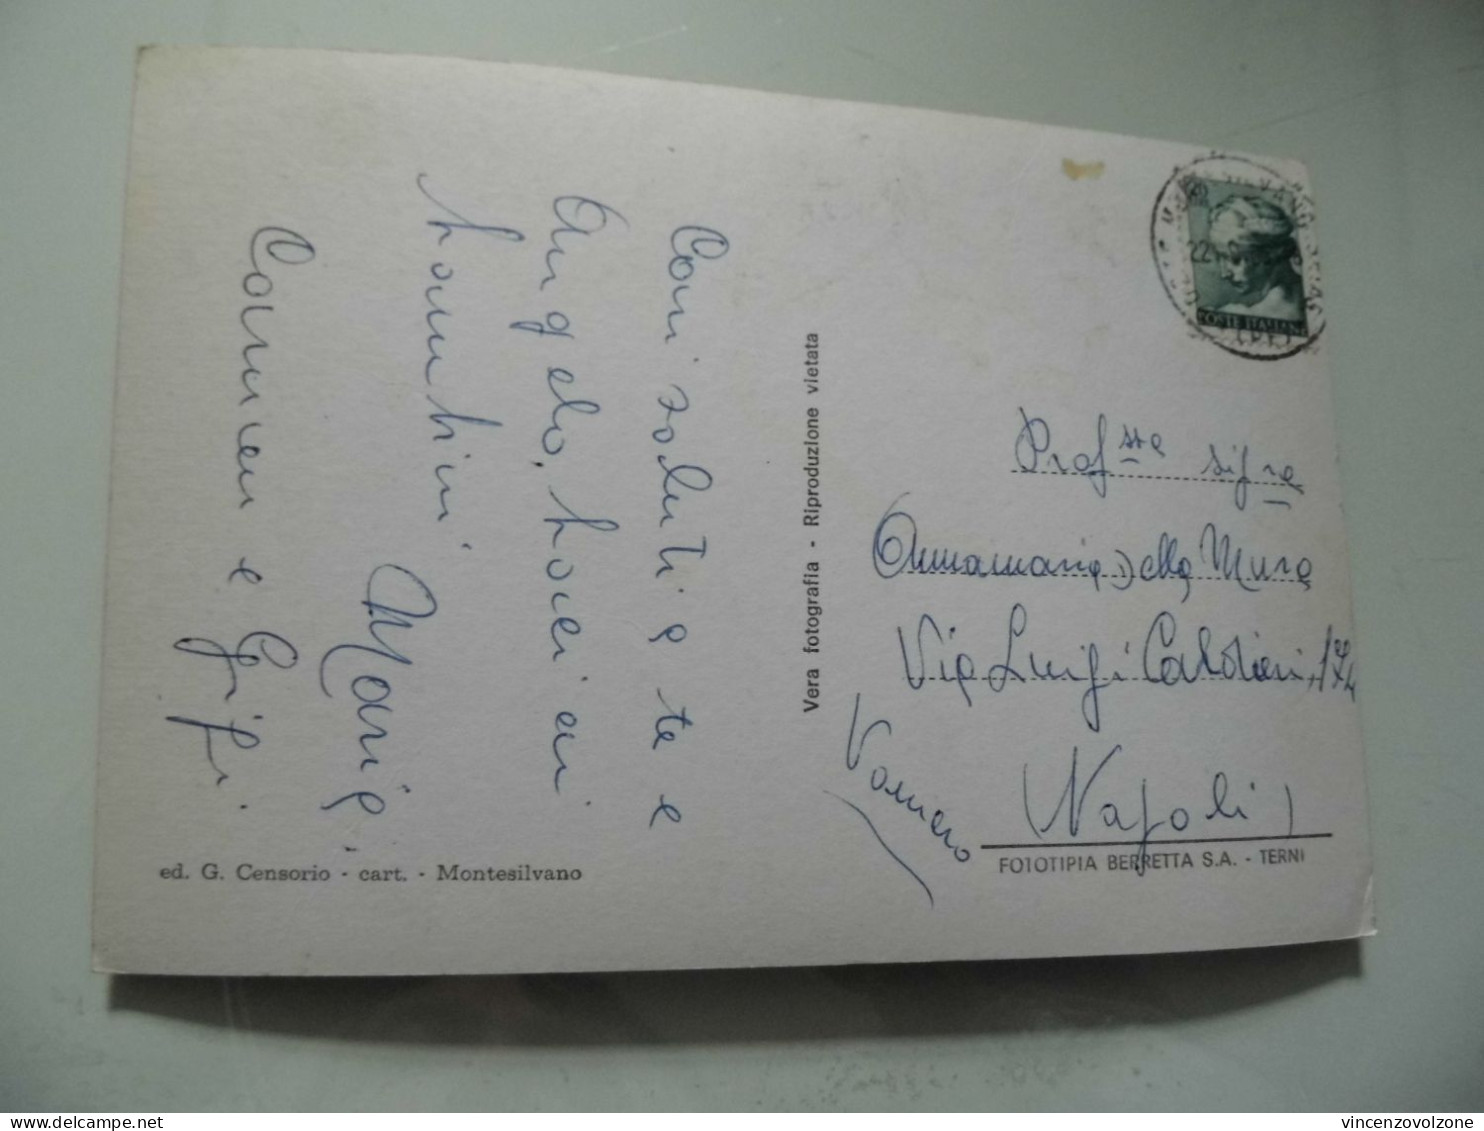 Cari saluti a te e
Angelo, baci ai
bambini
Maria,
Carmen e Gigi.
ed. G. Censorio - cart. - Montesilvano
Vera fotografia - Riproduzione vietata
POSTE ITALIANE
Prof.ssa Sig.ra
Annamaria Della Mura
Via Luigi Caldieri,
Vomero
(Napoli)
FOTOTIPIA BERRETTA S.A. - TERNI
vincenzovolzone